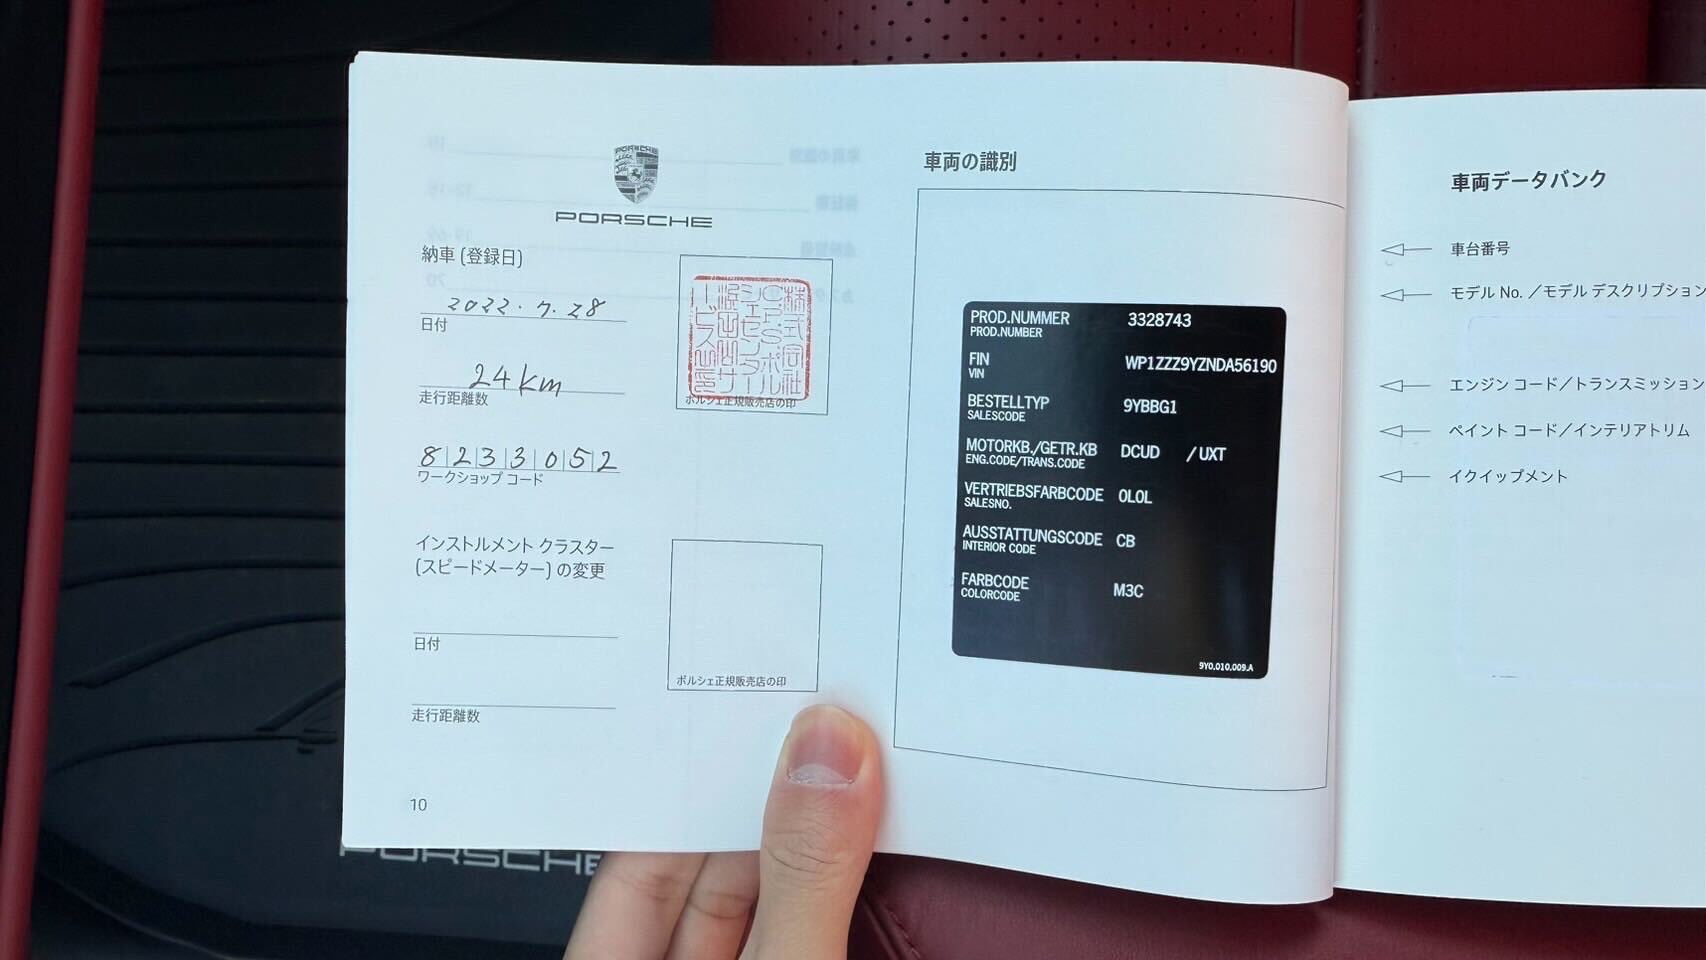 PORSCHE
納車 (登録日)
2022.7.28
日付
24km
走行距離数
8|2|3|3|0|5|2
ワークショップ コード
株式会社
CPSポル
シェセンター
浜田山サ
ービス之印
ポルシェ正規販売店の印
インストルメント クラスター
(スピードメーター) の変更
日付
走行距離数
ポルシェ正規販売店の印
10
車両の識別
PROD.NUMMER 3328743
PROD.NUMBER
FIN WP1ZZZ9YZNDA56190
VIN
BESTELLTYP 9YBBG1
SALESCODE
MOTORKB./GETR.KB DCUD /UXT
ENG.CODE/TRANS.CODE
VERTRIEBSFARBCODE 0L0L
SALESNO.
AUSSTATTUNGSCODE CB
INTERIOR CODE
FARBCODE M3C
COLORCODE
9Y0.010.009.A
車両データバンク
車台番号
モデル No. ／モデル デスクリプション
エンジン コード／トランスミッション
ペイント コード／インテリアトリム
イクイップメント
PORSCHE